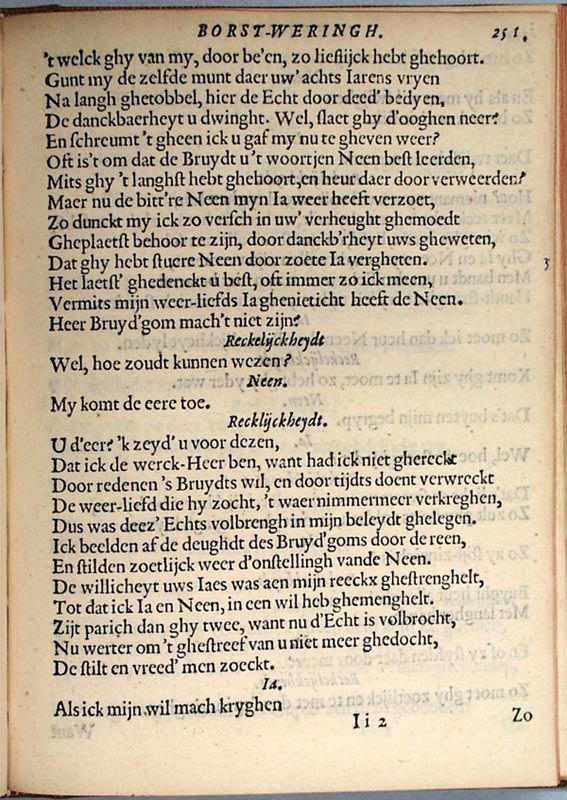 BORST-WERINGH. 251.
't welck ghy van my, door be'en, zo lieflijck hebt ghehoort.
Gunt my de zelfde munt daer uw' achts Iarens vryen
Na langh ghetobbel, hier de Echt door deed' bedyen,
De danckbaerheyt u dwinght. Wel, slaet ghy d'ooghen neer?
En schreumt 't gheen ick u gaf my nu te gheven weer?
Oft is't om dat de Bruydt u 't woortjen Neen best leerden,
Mits ghy 't langhst hebt ghehoort, en heur daer door verweerden?
Maer nu de bitt're Neen myn Ia weer heeft verzoet,
Zo dunckt my ick zo versch in uw' verheught ghemoedt
Gheplaetst behoor te zijn, door danckb'rheyt uws gheweten,
Dat ghy hebt stuere Neen door zoete Ia vergheten.
Het laetst' ghedenckt u best, oft immer zo ick meen,
Vermits mijn weer-liefds Ia ghenieticht heeft de Neen.
Heer Bruyd'gom mach't niet zijn?
Reckelijckheydt
Wel, hoe zoudt kunnen wezen?
Neen.
My komt de eere toe.
Recklijckheydt.
U d'eer? 'k zeyd' u voor dezen,
Dat ick de werck-Heer ben, want had ick niet ghereckt
Door redenen 's Bruydts wil, en door tijdts doent verwreckt
De weer-liefd die hy zocht, 't waer nimmermeer verkreghen,
Dus was deez' Echts volbrengh in mijn beleydt ghelegen.
Ick beelden af de deughdt des Bruyd'goms door de reen,
En stilden zoetlijck weer d'onstellingh vande Neen.
De willicheyt uws Iaes was aen mijn reeckx ghestrenghelt,
Tot dat ick Ia en Neen, in een wil heb ghemenghelt.
Zijt parich dan ghy twee, want nu d'Echt is volbrocht,
Nu werter om 't ghestreef van u niet meer ghedocht,
De stilt en vreed' men zoeckt.
Ia.
Als ick mijn wil mach kryghen
Ii 2 Zo